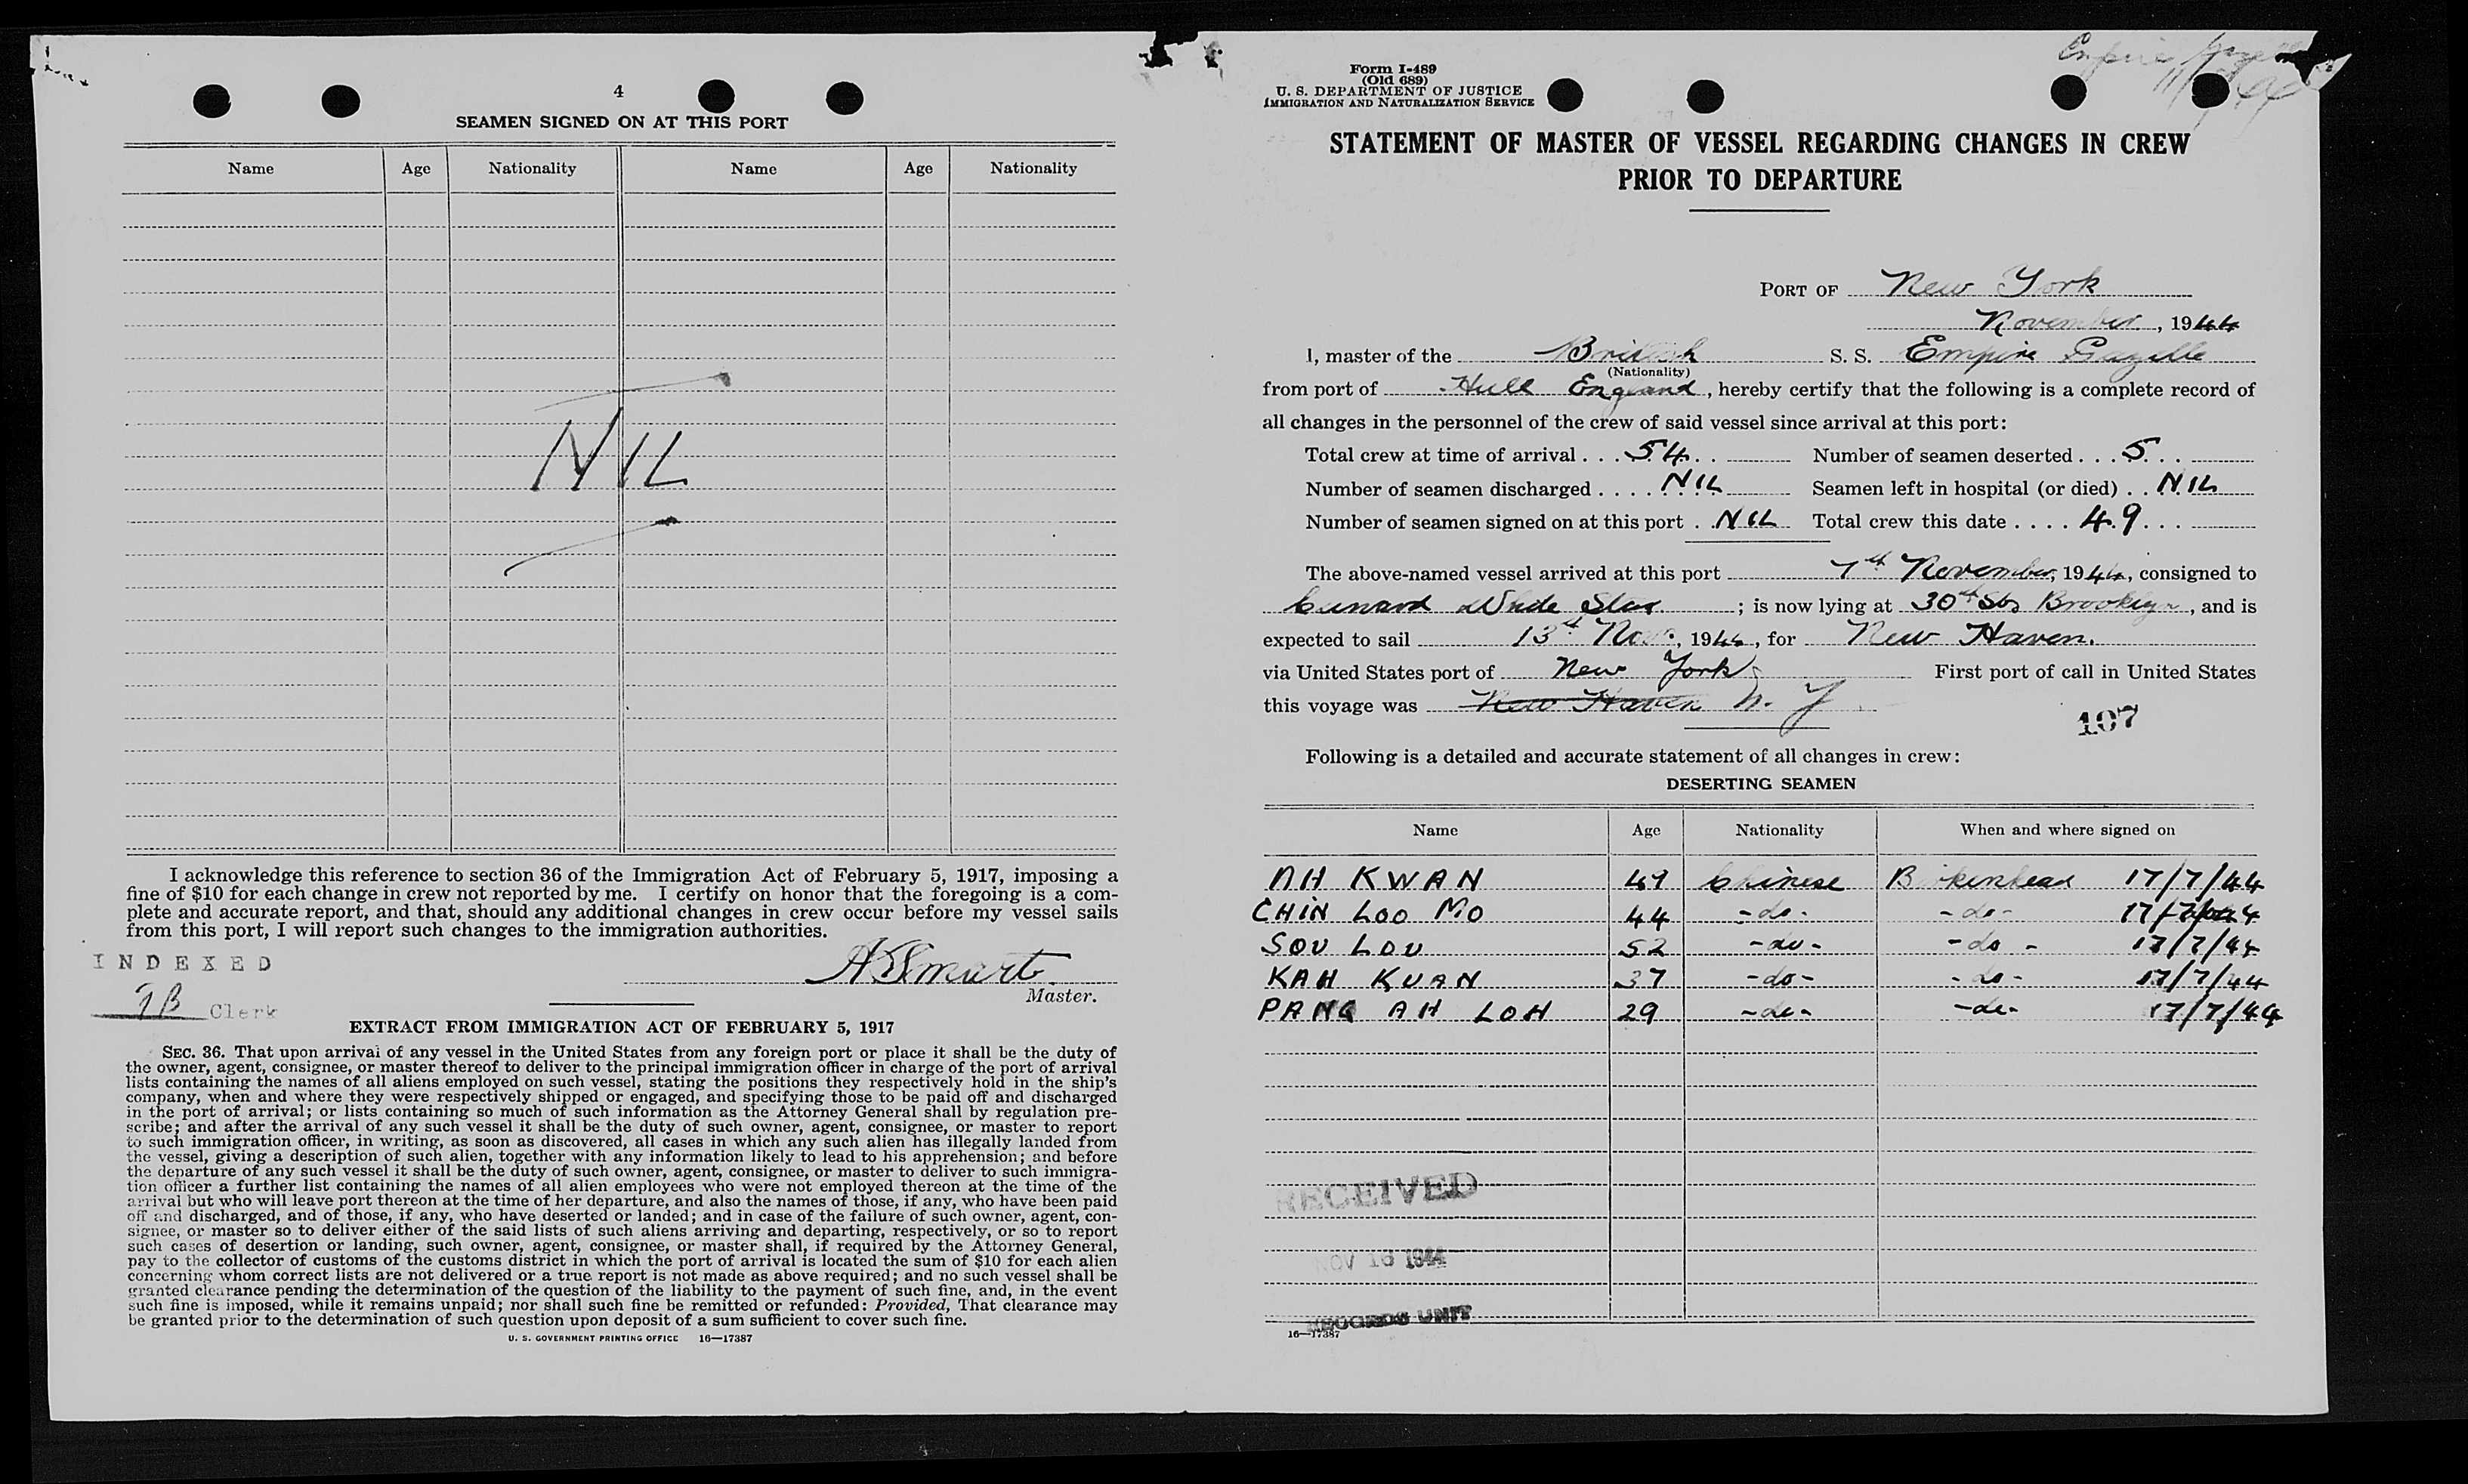 4
SEAMEN SIGNED ON AT THIS PORT
Name Age Nationality Name Age Nationality
NIL
I acknowledge this reference to section 36 of the Immigration Act of February 5, 1917, imposing a
fine of $10 for each change in crew not reported by me. I certify on honor that the foregoing is a com-
plete and accurate report, and that, should any additional changes in crew occur before my vessel sails
from this port, I will report such changes to the immigration authorities.
INDEXED
Clerk
A Smart
Master.
EXTRACT FROM IMMIGRATION ACT OF FEBRUARY 5, 1917
SEC. 36. That upon arrival of any vessel in the United States from any foreign port or place it shall be the duty of
the owner, agent, consignee, or master thereof to deliver to the principal immigration officer in charge of the port of arrival
lists containing the names of all aliens employed on such vessel, stating the positions they respectively hold in the ship's
company, when and where they were respectively shipped or engaged, and specifying those to be paid off and discharged
in the port of arrival; or lists containing so much of such information as the Attorney General shall by regulation pre-
scribe; and after the arrival of any such vessel it shall be the duty of such owner, agent, consignee, or master to report
to such immigration officer, in writing, as soon as discovered, all cases in which any such alien has illegally landed from
the vessel, giving a description of such alien, together with any information likely to lead to his apprehension; and before
the departure of any such vessel it shall be the duty of such owner, agent, consignee, or master to deliver to such immigra-
tion officer a further list containing the names of all alien employees who were not employed thereon at the time of the
arrival but who will leave port thereon at the time of her departure, and also the names of those, if any, who have been paid
off and discharged, and of those, if any, who have deserted or landed; and in case of the failure of such owner, agent, con-
signee, or master so to deliver either of the said lists of such aliens arriving and departing, respectively, or so to report
such cases of desertion or landing, such owner, agent, consignee, or master shall, if required by the Attorney General,
pay to the collector of customs of the customs district in which the port of arrival is located the sum of $10 for each alien
concerning whom correct lists are not delivered or a true report is not made as above required; and no such vessel shall be
granted clearance pending the determination of the question of the liability to the payment of such fine, and, in the event
such fine is imposed, while it remains unpaid; nor shall such fine be remitted or refunded: Provided, That clearance may
be granted prior to the determination of such question upon deposit of a sum sufficient to cover such fine.
U. S. GOVERNMENT PRINTING OFFICE 16—17387
Empire
Form I-489
(Old 689)
U. S. DEPARTMENT OF JUSTICE
IMMIGRATION AND NATURALIZATION SERVICE
STATEMENT OF MASTER OF VESSEL REGARDING CHANGES IN CREW
PRIOR TO DEPARTURE
PORT OF New York
November, 1944
I, master of the British S. S. Empire Gazelle
(Nationality)
from port of Hull England, hereby certify that the following is a complete record of
all changes in the personnel of the crew of said vessel since arrival at this port:
Total crew at time of arrival . . . 54 . . Number of seamen deserted . . . 5 . . .
Number of seamen discharged . . . . NIL Seamen left in hospital (or died) . . NIL
Number of seamen signed on at this port . . NIL Total crew this date . . . . 49 . . .
The above-named vessel arrived at this port 7th November, 1944, consigned to
Cunard White Star ; is now lying at 30th Sts Brooklyn, and is
expected to sail 13th Nov., 1944, for New Haven.
via United States port of New York First port of call in United States
this voyage was New Haven N. Y
107
Following is a detailed and accurate statement of all changes in crew:
DESERTING SEAMEN
Name Age Nationality When and where signed on
AH KWAN 49 Chinese Birkenhead 17/7/44
CHIN LOO MO 44 -do- -do- 17/7/44
SOU LOU 52 -do- -do- 17/7/44
KAH KUAN 37 -do- -do- 17/7/44
PANG AH LOH 29 -do- -do- 17/7/44
RECEIVED
NOV 16 1944
RECORDS UNIT
16—17387